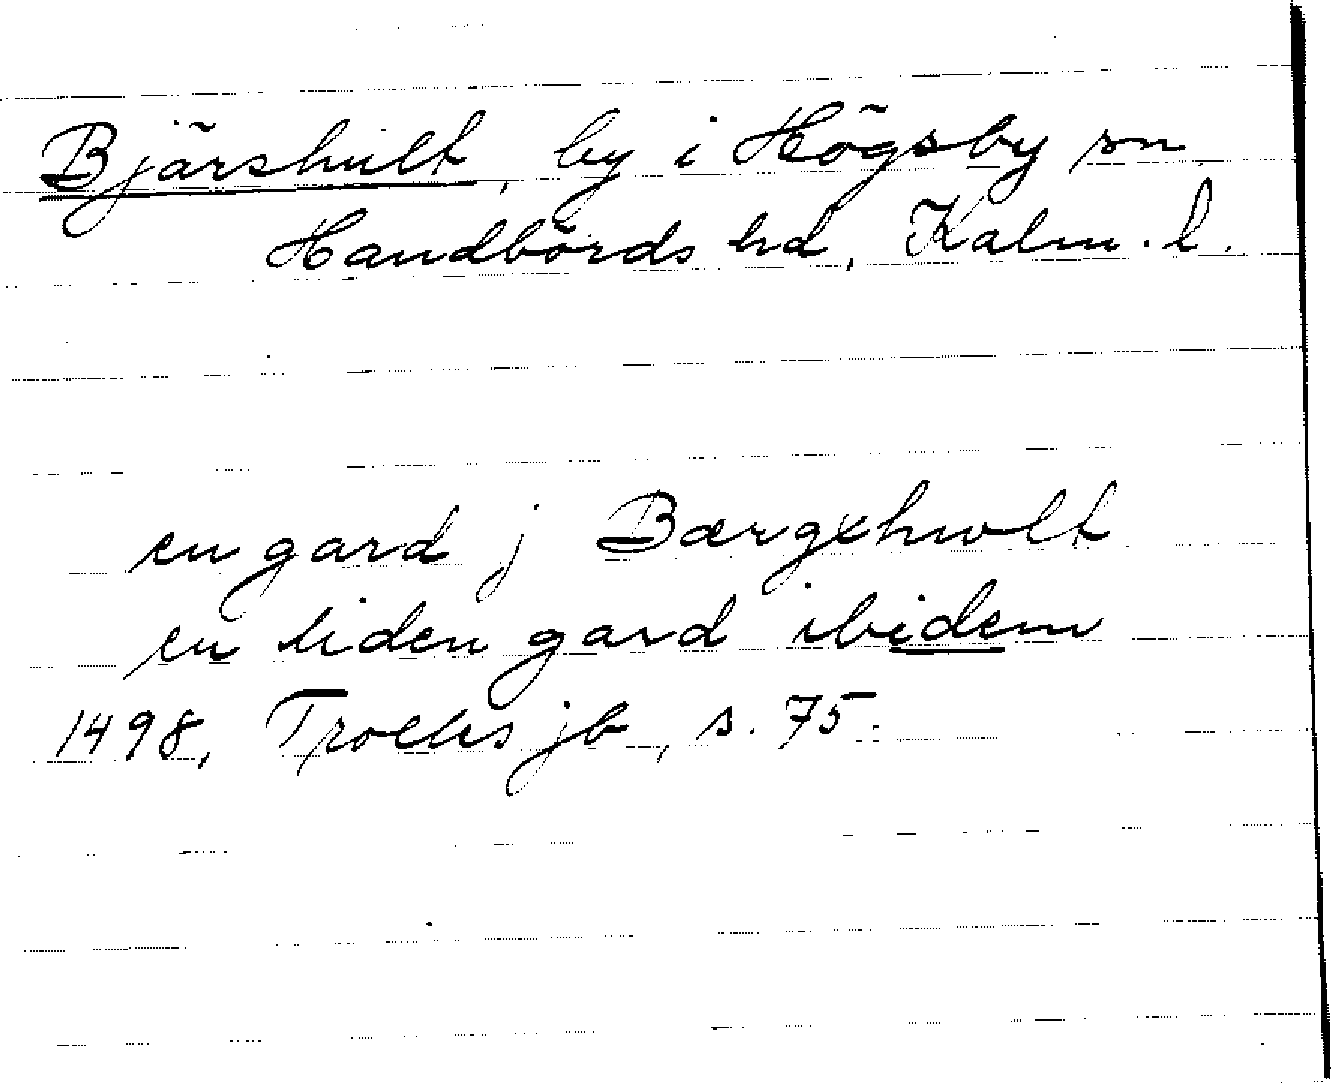 Bjärshult, by i Högsby sn
Handbörds hd, Kalm. l.
en gard j Bærgxhwlt
en liden gard ibidem
1498, Trolles jb, s. 75.